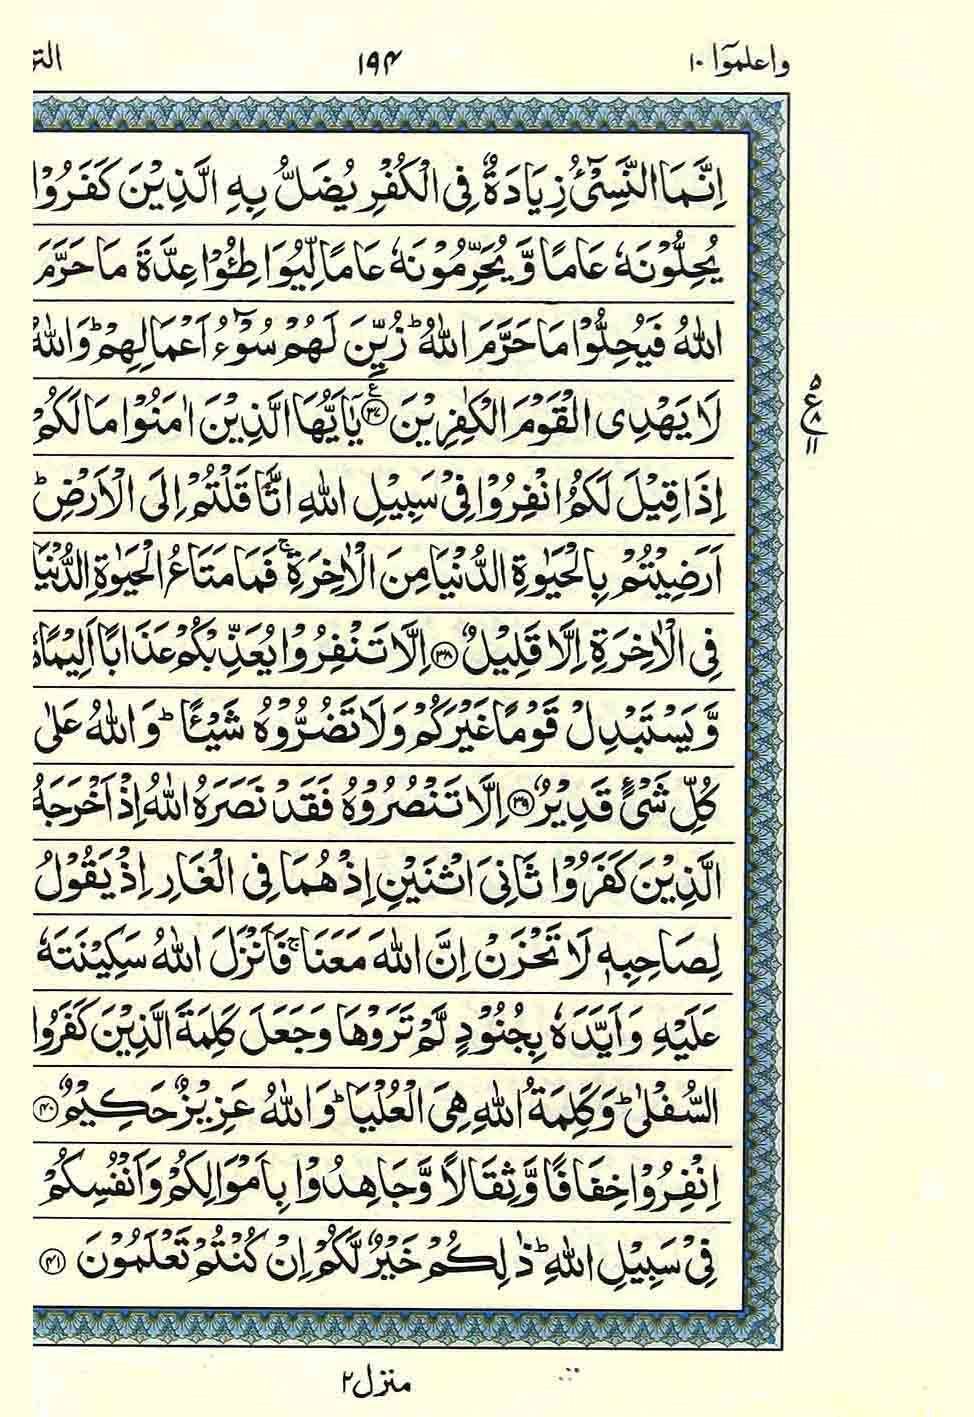 واعلموٓا ١٠ ١٩٤ التو
اِنَّمَا النَّسِیْٓءُ زِیَادَةٌ فِی الْكُفْرِ یُضَلُّ بِهِ الَّذِیْنَ كَفَرُوْا
یُحِلُّوْنَهٗ عَامًا وَّ یُحَرِّمُوْنَهٗ عَامًا لِّیُوَاطِـُٔوْا عِدَّةَ مَا حَرَّمَ
اللّٰهُ فَیُحِلُّوْا مَا حَرَّمَ اللّٰهُؕ زُیِّنَ لَهُمْ سُوْٓءُ اَعْمَالِهِمْؕ وَ اللّٰهُ
لَا یَهْدِی الْقَوْمَ الْكٰفِرِیْنَ ﴿۳۷﴾ یٰۤاَیُّهَا الَّذِیْنَ اٰمَنُوْا مَا لَكُمْ
اِذَا قِیْلَ لَكُمُ انْفِرُوْا فِیْ سَبِیْلِ اللّٰهِ اثَّاقَلْتُمْ اِلَی الْاَرْضِؕ
اَرَضِیْتُمْ بِالْحَیٰوةِ الدُّنْیَا مِنَ الْاٰخِرَةِۚ فَمَا مَتَاعُ الْحَیٰوةِ الدُّنْیَا
فِی الْاٰخِرَةِ اِلَّا قَلِیْلٌ ﴿۳۸﴾ اِلَّا تَنْفِرُوْا یُعَذِّبْكُمْ عَذَابًا اَلِیْمًا
وَّ یَسْتَبْدِلْ قَوْمًا غَیْرَكُمْ وَ لَا تَضُرُّوْهُ شَیْــٴًـاؕ وَ اللّٰهُ عَلٰى
كُلِّ شَیْءٍ قَدِیْرٌ ﴿۳۹﴾ اِلَّا تَنْصُرُوْهُ فَقَدْ نَصَرَهُ اللّٰهُ اِذْ اَخْرَجَهُ
الَّذِیْنَ كَفَرُوْا ثَانِیَ اثْنَیْنِ اِذْ هُمَا فِی الْغَارِ اِذْ یَقُوْلُ
لِصَاحِبِهٖ لَا تَحْزَنْ اِنَّ اللّٰهَ مَعَنَاۚ فَاَنْزَلَ اللّٰهُ سَكِیْنَتَهٗ
عَلَیْهِ وَ اَیَّدَهٗ بِجُنُوْدٍ لَّمْ تَرَوْهَا وَ جَعَلَ كَلِمَةَ الَّذِیْنَ كَفَرُوا
السُّفْلٰىؕ وَ كَلِمَةُ اللّٰهِ هِیَ الْعُلْیَاؕ وَ اللّٰهُ عَزِیْزٌ حَكِیْمٌ ﴿۴۰﴾
اِنْفِرُوْا خِفَافًا وَّ ثِقَالًا وَّ جَاهِدُوْا بِاَمْوَالِكُمْ وَ اَنْفُسِكُمْ
فِیْ سَبِیْلِ اللّٰهِؕ ذٰلِكُمْ خَیْرٌ لَّكُمْ اِنْ كُنْتُمْ تَعْلَمُوْنَ ﴿۴۱﴾
۵
ع ۸
۱۱
منزل ۲